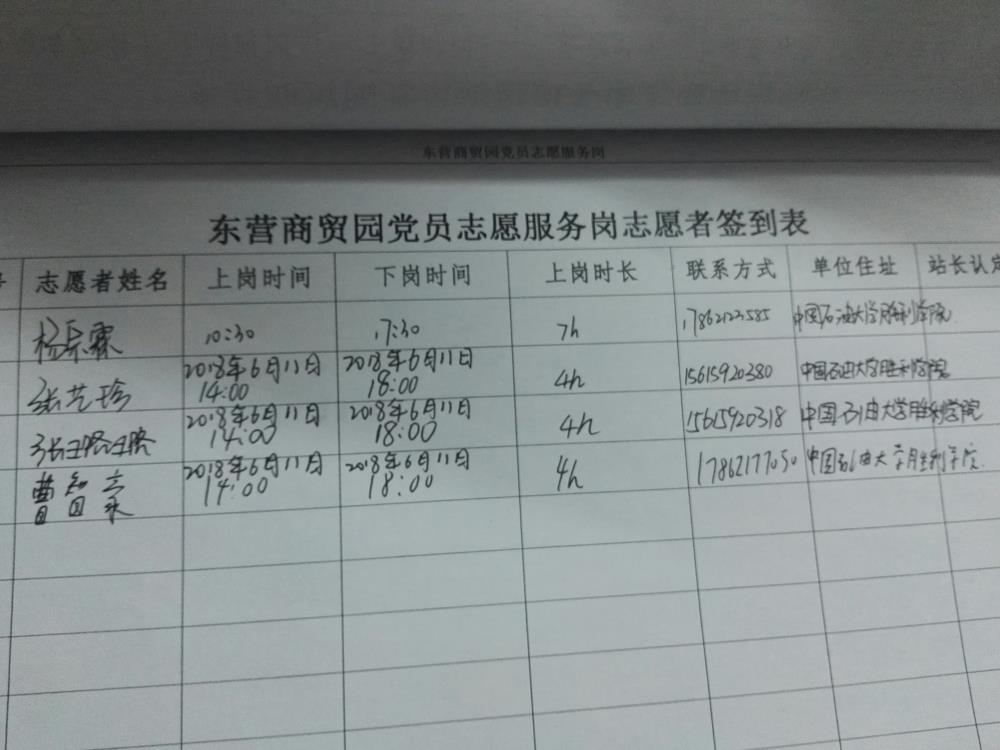 东营商贸园党员志愿服务岗
东营商贸园党员志愿服务岗志愿者签到表
志愿者姓名 上岗时间 下岗时间 上岗时长 联系方式 单位住址 站长认定
10:30 17:30 7h 17862123585 中国石油大学胜利学院
2018年6月11日 2018年6月11日
张艺珍 14:00 18:00 4h 15615920380 中国石油大学胜利学院
2018年6月11日 2018年6月11日
张璐璐 14:00 18:00 4h 15615920318 中国石油大学胜利学院
2018年6月11日 2018年6月11日
曹智 14:00 18:00 4h 17862177050 中国石油大学胜利学院